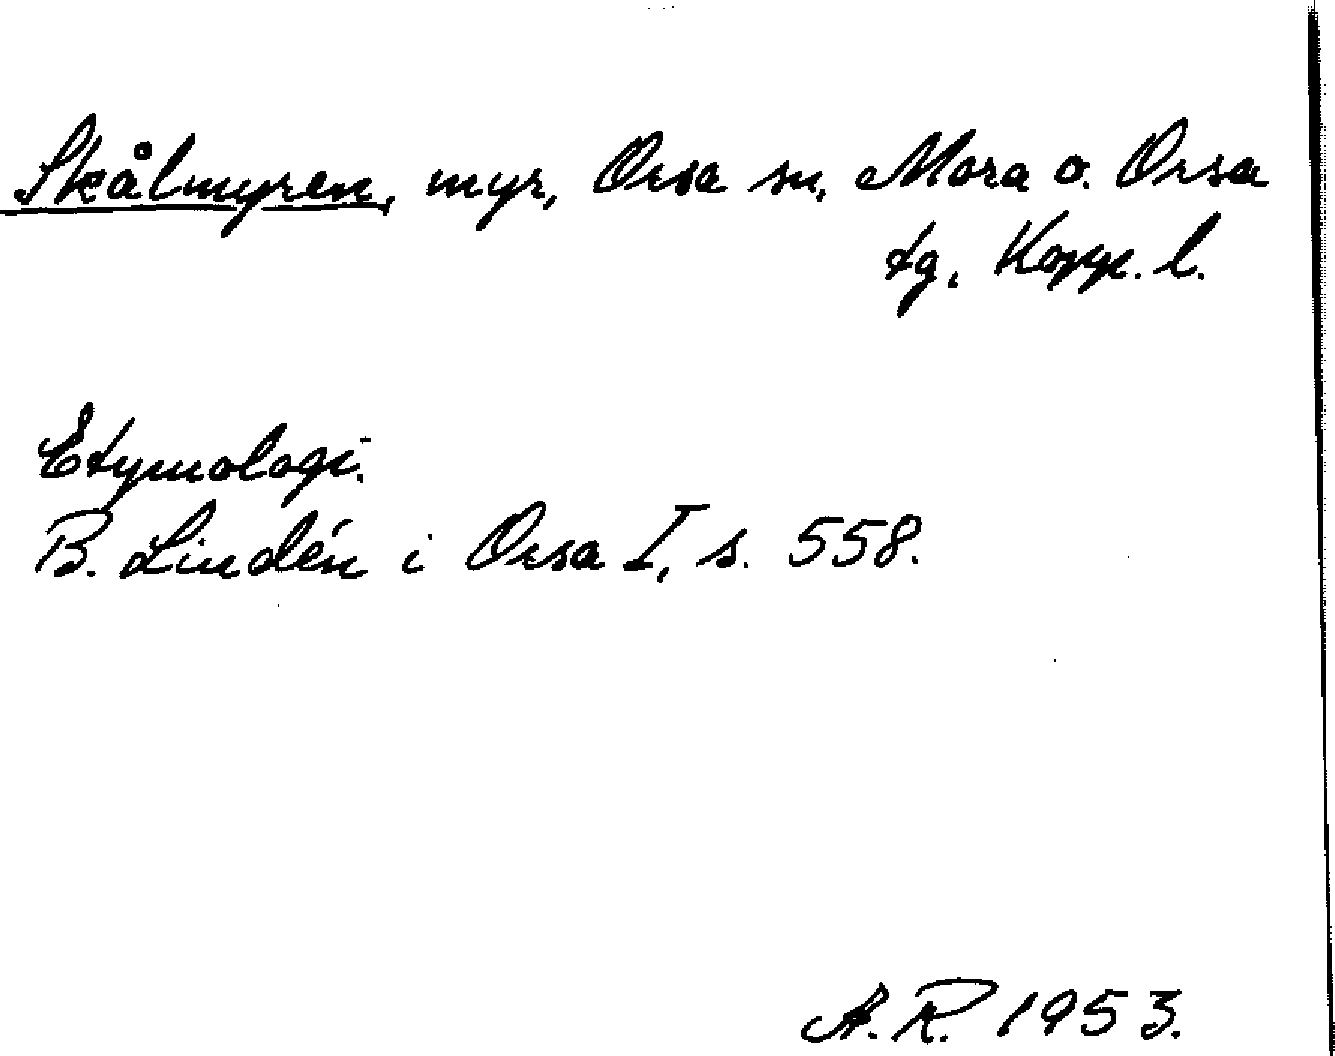 Skålmyren, myr, Orsa sn, Mora o. Orsa
tg, Kopp. l.
Etymologi:
B. Lindén i Orsa I, s. 558.
A. R. 1953.